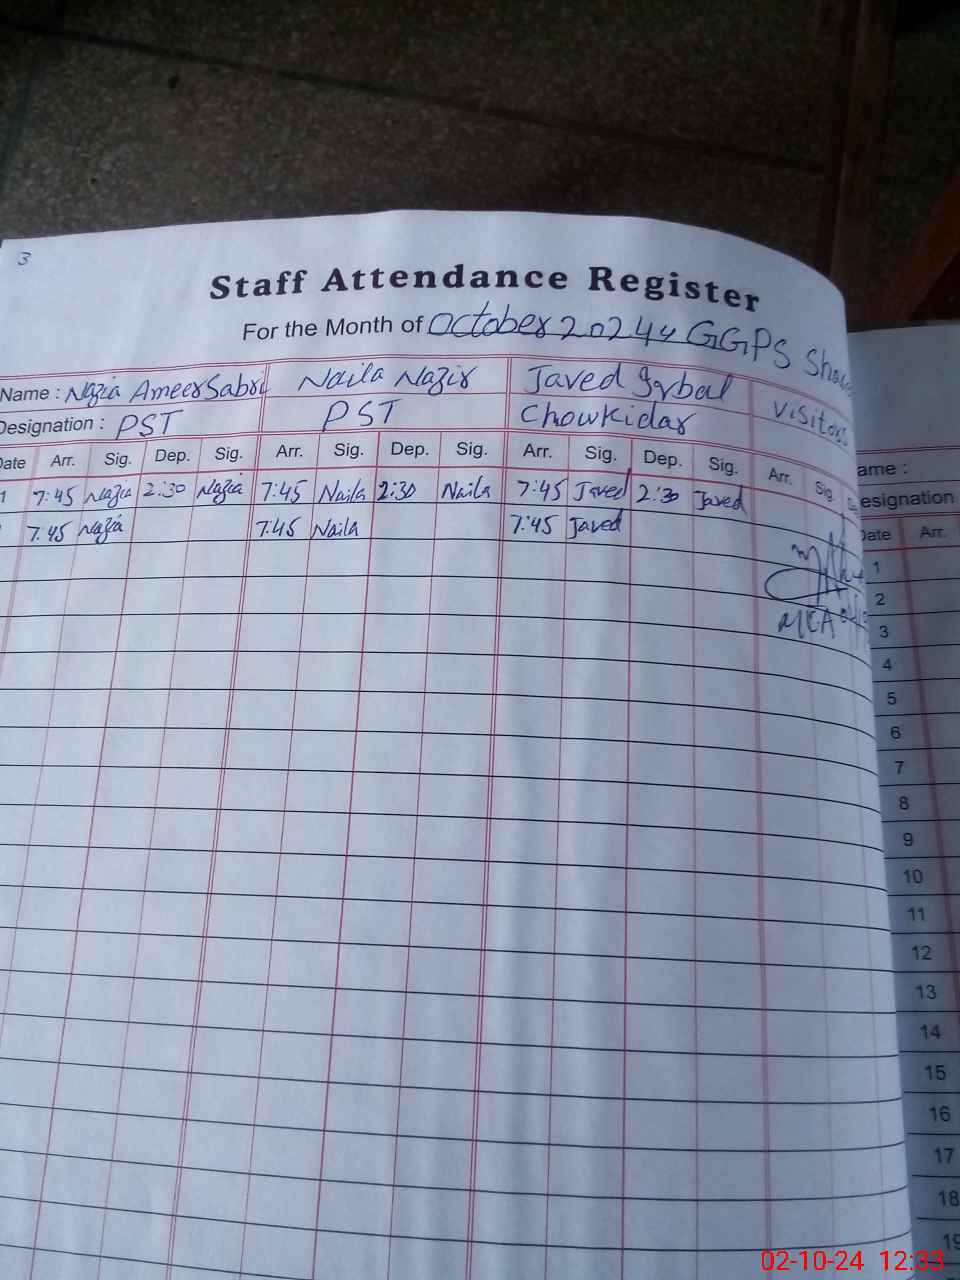 3
Staff Attendance Register
For the Month of October 2024 GGPS
Name : Nazia Ameer Sabri Naila Nazir Javed Iqbal Visitors
Designation : PST PST Chowkidar
Date Arr. Sig. Dep. Sig. Arr. Sig. Dep. Sig. Arr. Sig. Dep. Sig. Arr. Sig.
1 7:45 Nazia 2:30 Nazia 7:45 Naila 2:30 Naila 7:45 Javed 2:30 Javed
7:45 Nazia 7:45 Naila 7:45 Javed
MEA
ame :
esignation
Date Arr.
1
2
3
4
5
6
7
8
9
10
11
12
13
14
15
16
17
18
19
02-10-24 12:33